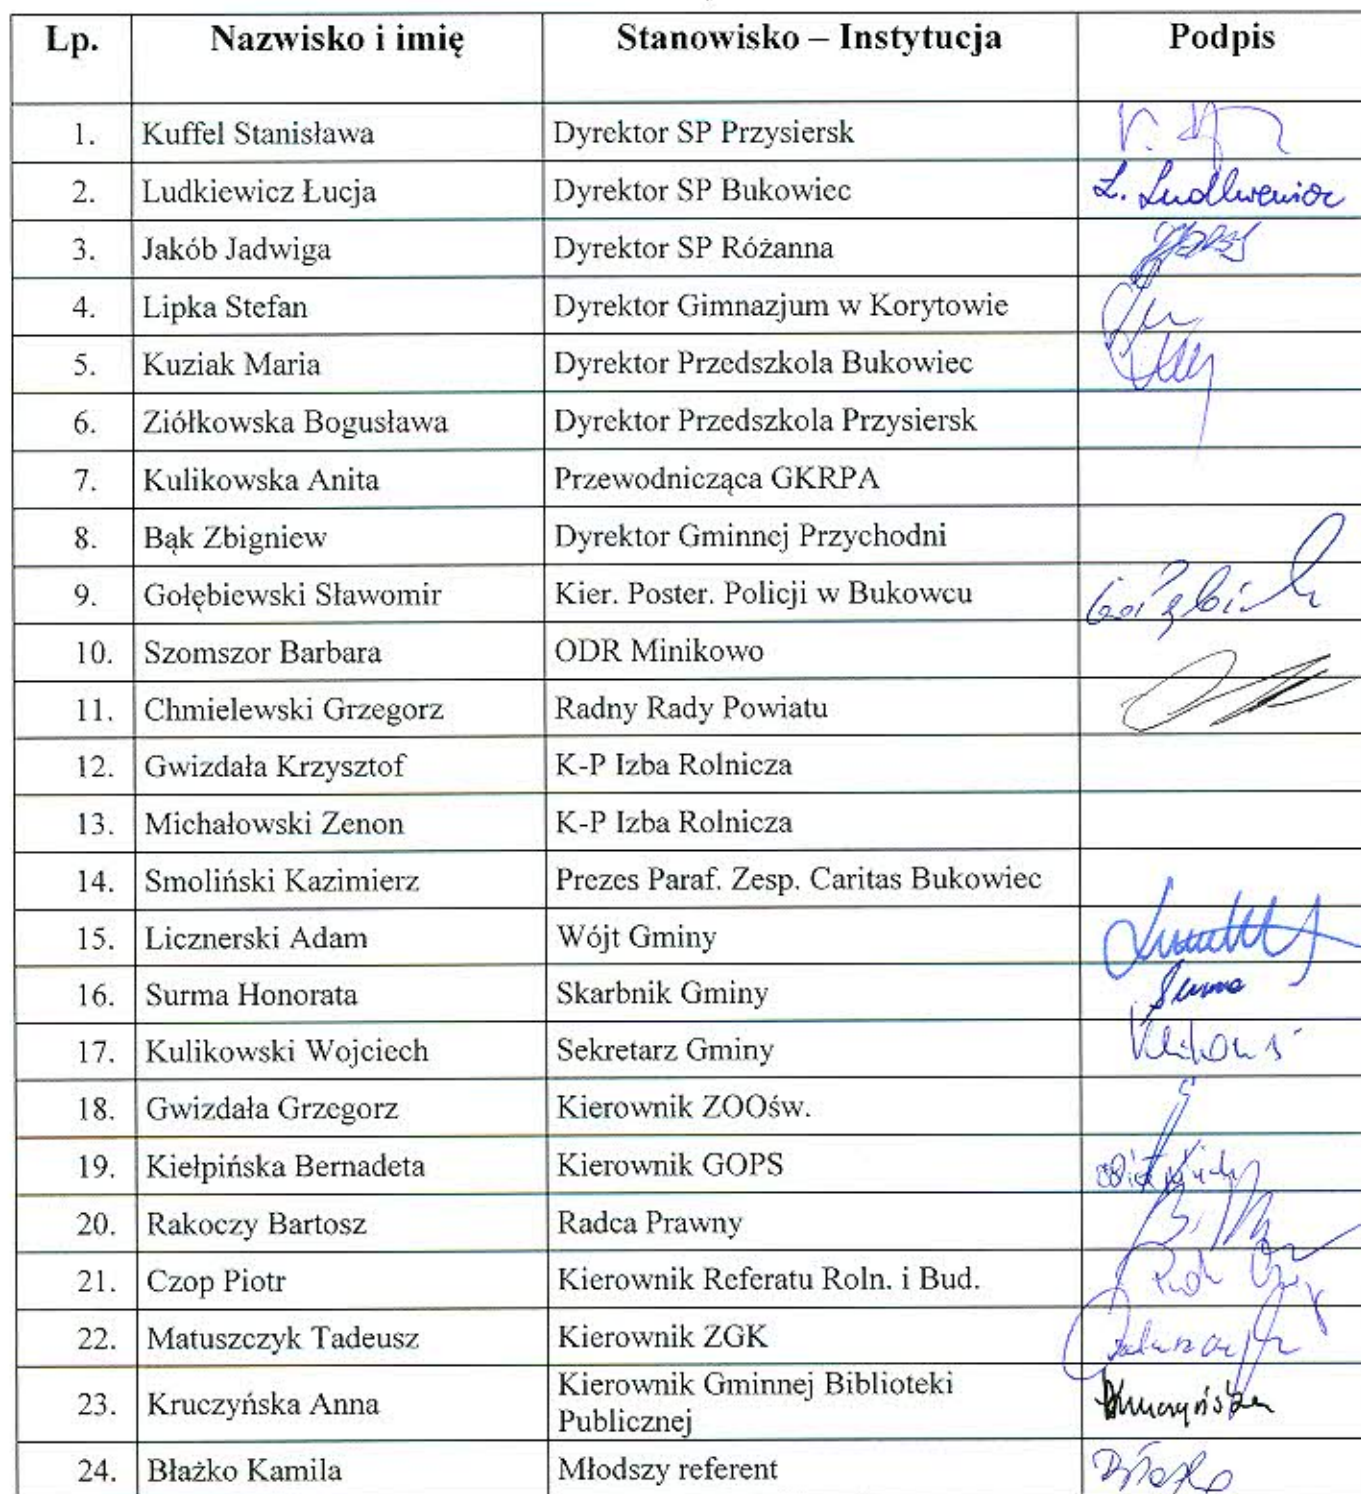 Lp. Nazwisko i imię Stanowisko – Instytucja Podpis
1. Kuffel Stanisława Dyrektor SP Przysiersk
2. Ludkiewicz Łucja Dyrektor SP Bukowiec
3. Jakób Jadwiga Dyrektor SP Różanna
4. Lipka Stefan Dyrektor Gimnazjum w Korytowie
5. Kuziak Maria Dyrektor Przedszkola Bukowiec
6. Ziółkowska Bogusława Dyrektor Przedszkola Przysiersk
7. Kulikowska Anita Przewodnicząca GKRPA
8. Bąk Zbigniew Dyrektor Gminnej Przychodni
9. Gołębiewski Sławomir Kier. Poster. Policji w Bukowcu
10. Szomszor Barbara ODR Minikowo
11. Chmielewski Grzegorz Radny Rady Powiatu
12. Gwizdała Krzysztof K-P Izba Rolnicza
13. Michałowski Zenon K-P Izba Rolnicza
14. Smoliński Kazimierz Prezes Paraf. Zesp. Caritas Bukowiec
15. Licznerski Adam Wójt Gminy
16. Surma Honorata Skarbnik Gminy Surma
17. Kulikowski Wojciech Sekretarz Gminy
18. Gwizdała Grzegorz Kierownik ZOOśw.
19. Kiełpińska Bernadeta Kierownik GOPS
20. Rakoczy Bartosz Radca Prawny
21. Czop Piotr Kierownik Referatu Roln. i Bud.
22. Matuszczyk Tadeusz Kierownik ZGK
23. Kruczyńska Anna Kierownik Gminnej Biblioteki
Publicznej
24. Błażko Kamila Młodszy referent